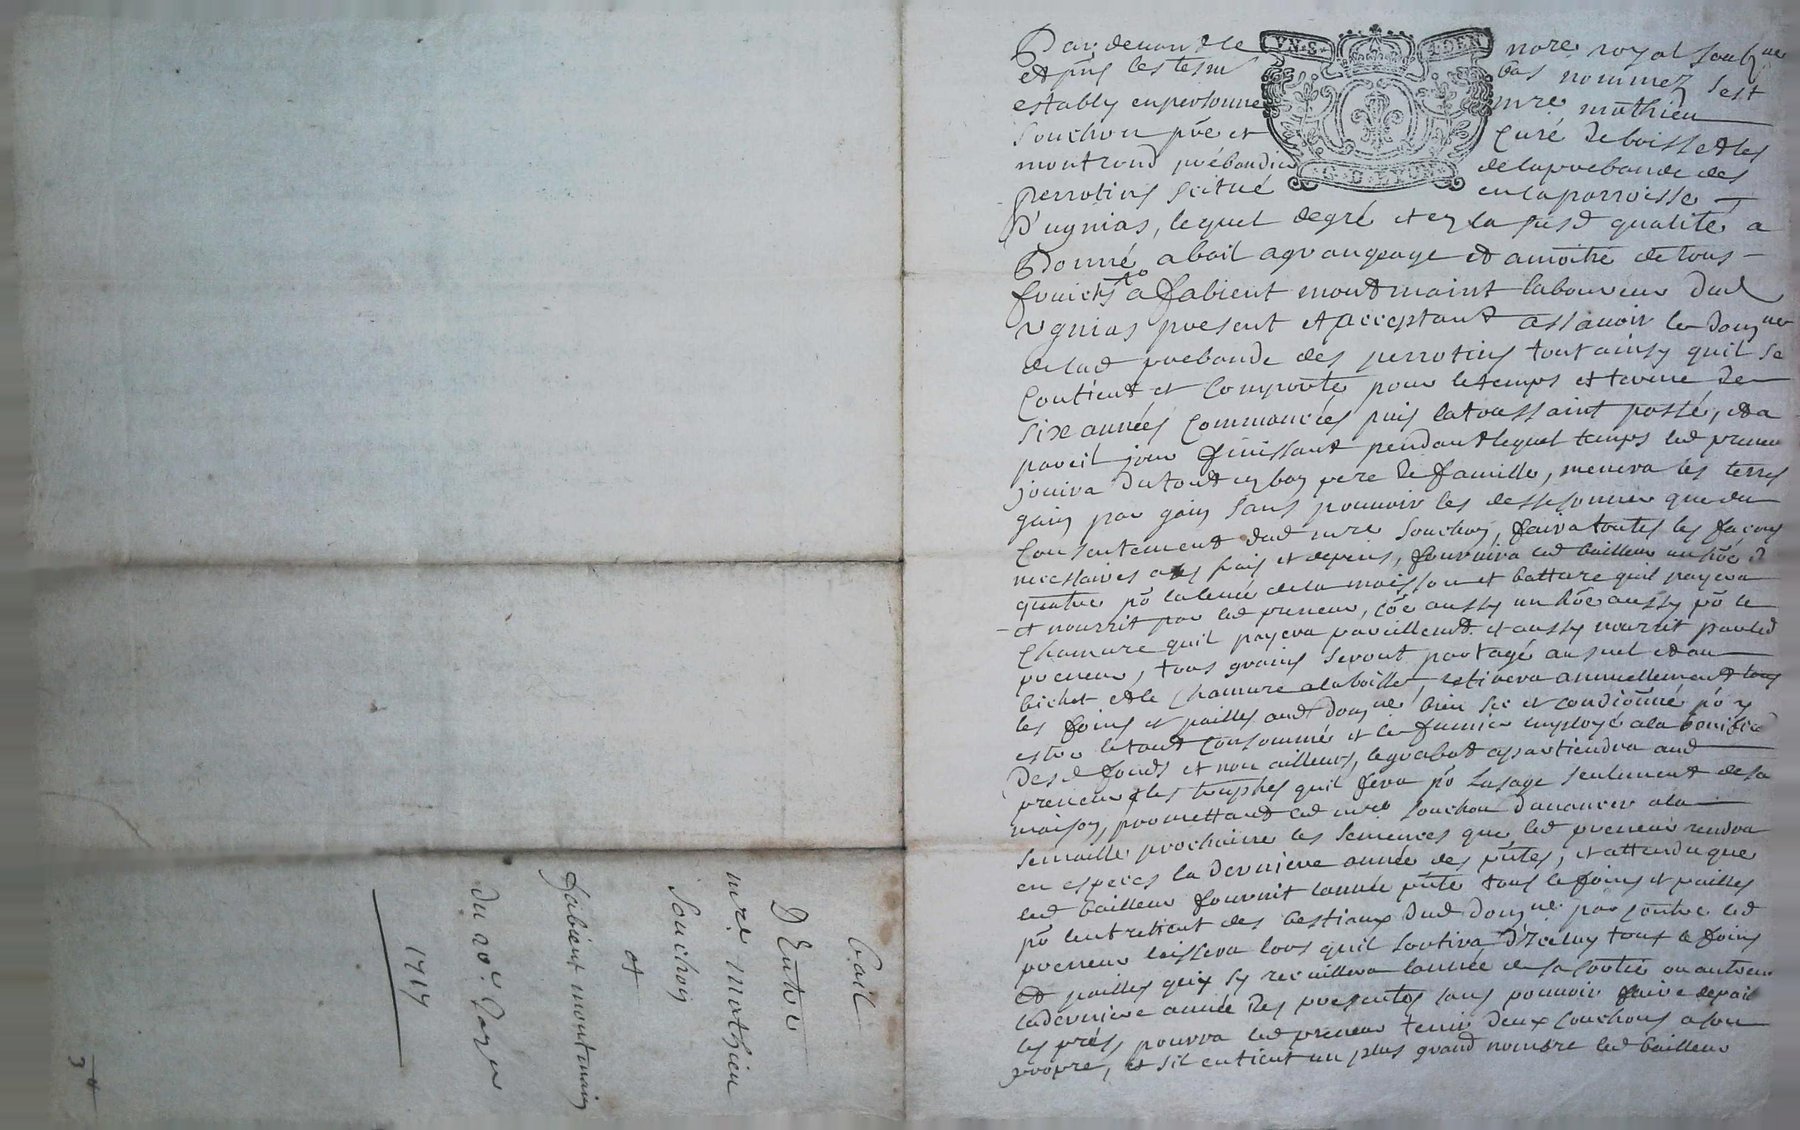 VN·S·
4·DEN
G·D·LYON
Par devant le nore royal soub.né
et pñs les tesms bas nommez sest
estably en personne mre mathieu
Souchon pre et Curé de boisset les
montrond prébandier de la prebande des
perrotins scitué en la parroisse
D'ugnias, lequel de gré et en la susd qualité a
Donné a bail a grangeage et a moitié de tous
fruicts a fabient montmaint laboureur dud
ugnias present et acceptant assavoir le domne
de lad prebande des perrotins tout ainsy quil se
Contient et Comporte pour le temps et terme de
six années Commancées puis la toussaint passé, et a
pareil jour finissant pendant lequel temps led preneur
jouira du tout en bon pere de famille, menera les terres
gain par gain sans pouvoir les dessesonner que du
Consentement dud mre Souchon, faira toutes les façons
necessaires a ses frais et depens, fournira led bailleur un hoe
quatre po la levée de la moisson et batture quil payera
et nourrit par led preneur, coe aussy un hoe aussy po le
Chamure quil payera pareillemt et aussy nourrit par led
preneur, tous grains seront partagé au suel et au
bichet et le Chamure a la baille, retirera annuellement tous
les foins et pailles aud domne bien sec et condionné po y
estre le tout Consommé et le fumier employé a la bonific
Desd fonds et non ailleurs, le grabot apartiendra aud
preneur et les truphes quil fera po lusage seulement de sa
maison, promettant led mre Souchon davancer a la
semaille prochaine les semences que led preneur rendra
en especes la derniere année des pntes, et attendu que
led bailleur fournit lannée pnte tous les foins et pailles
po lentretient des bestiaux dud domne par contre led
preneur laissera lors quil sortira d'Iceluy tous le foins
et pailles quis sy recuillera lannée de sa sortie ou autrem
la derniere année des presentes sans pouvoir faire depaic
les prés, pourra led preneur tenir deux Couchons a son
propre, et sil en tient un plus grand nombre led bailleur
bail
D'Entre
mre mathieu
Souchon
et
fabient montmain
Du 20e
1717
3#